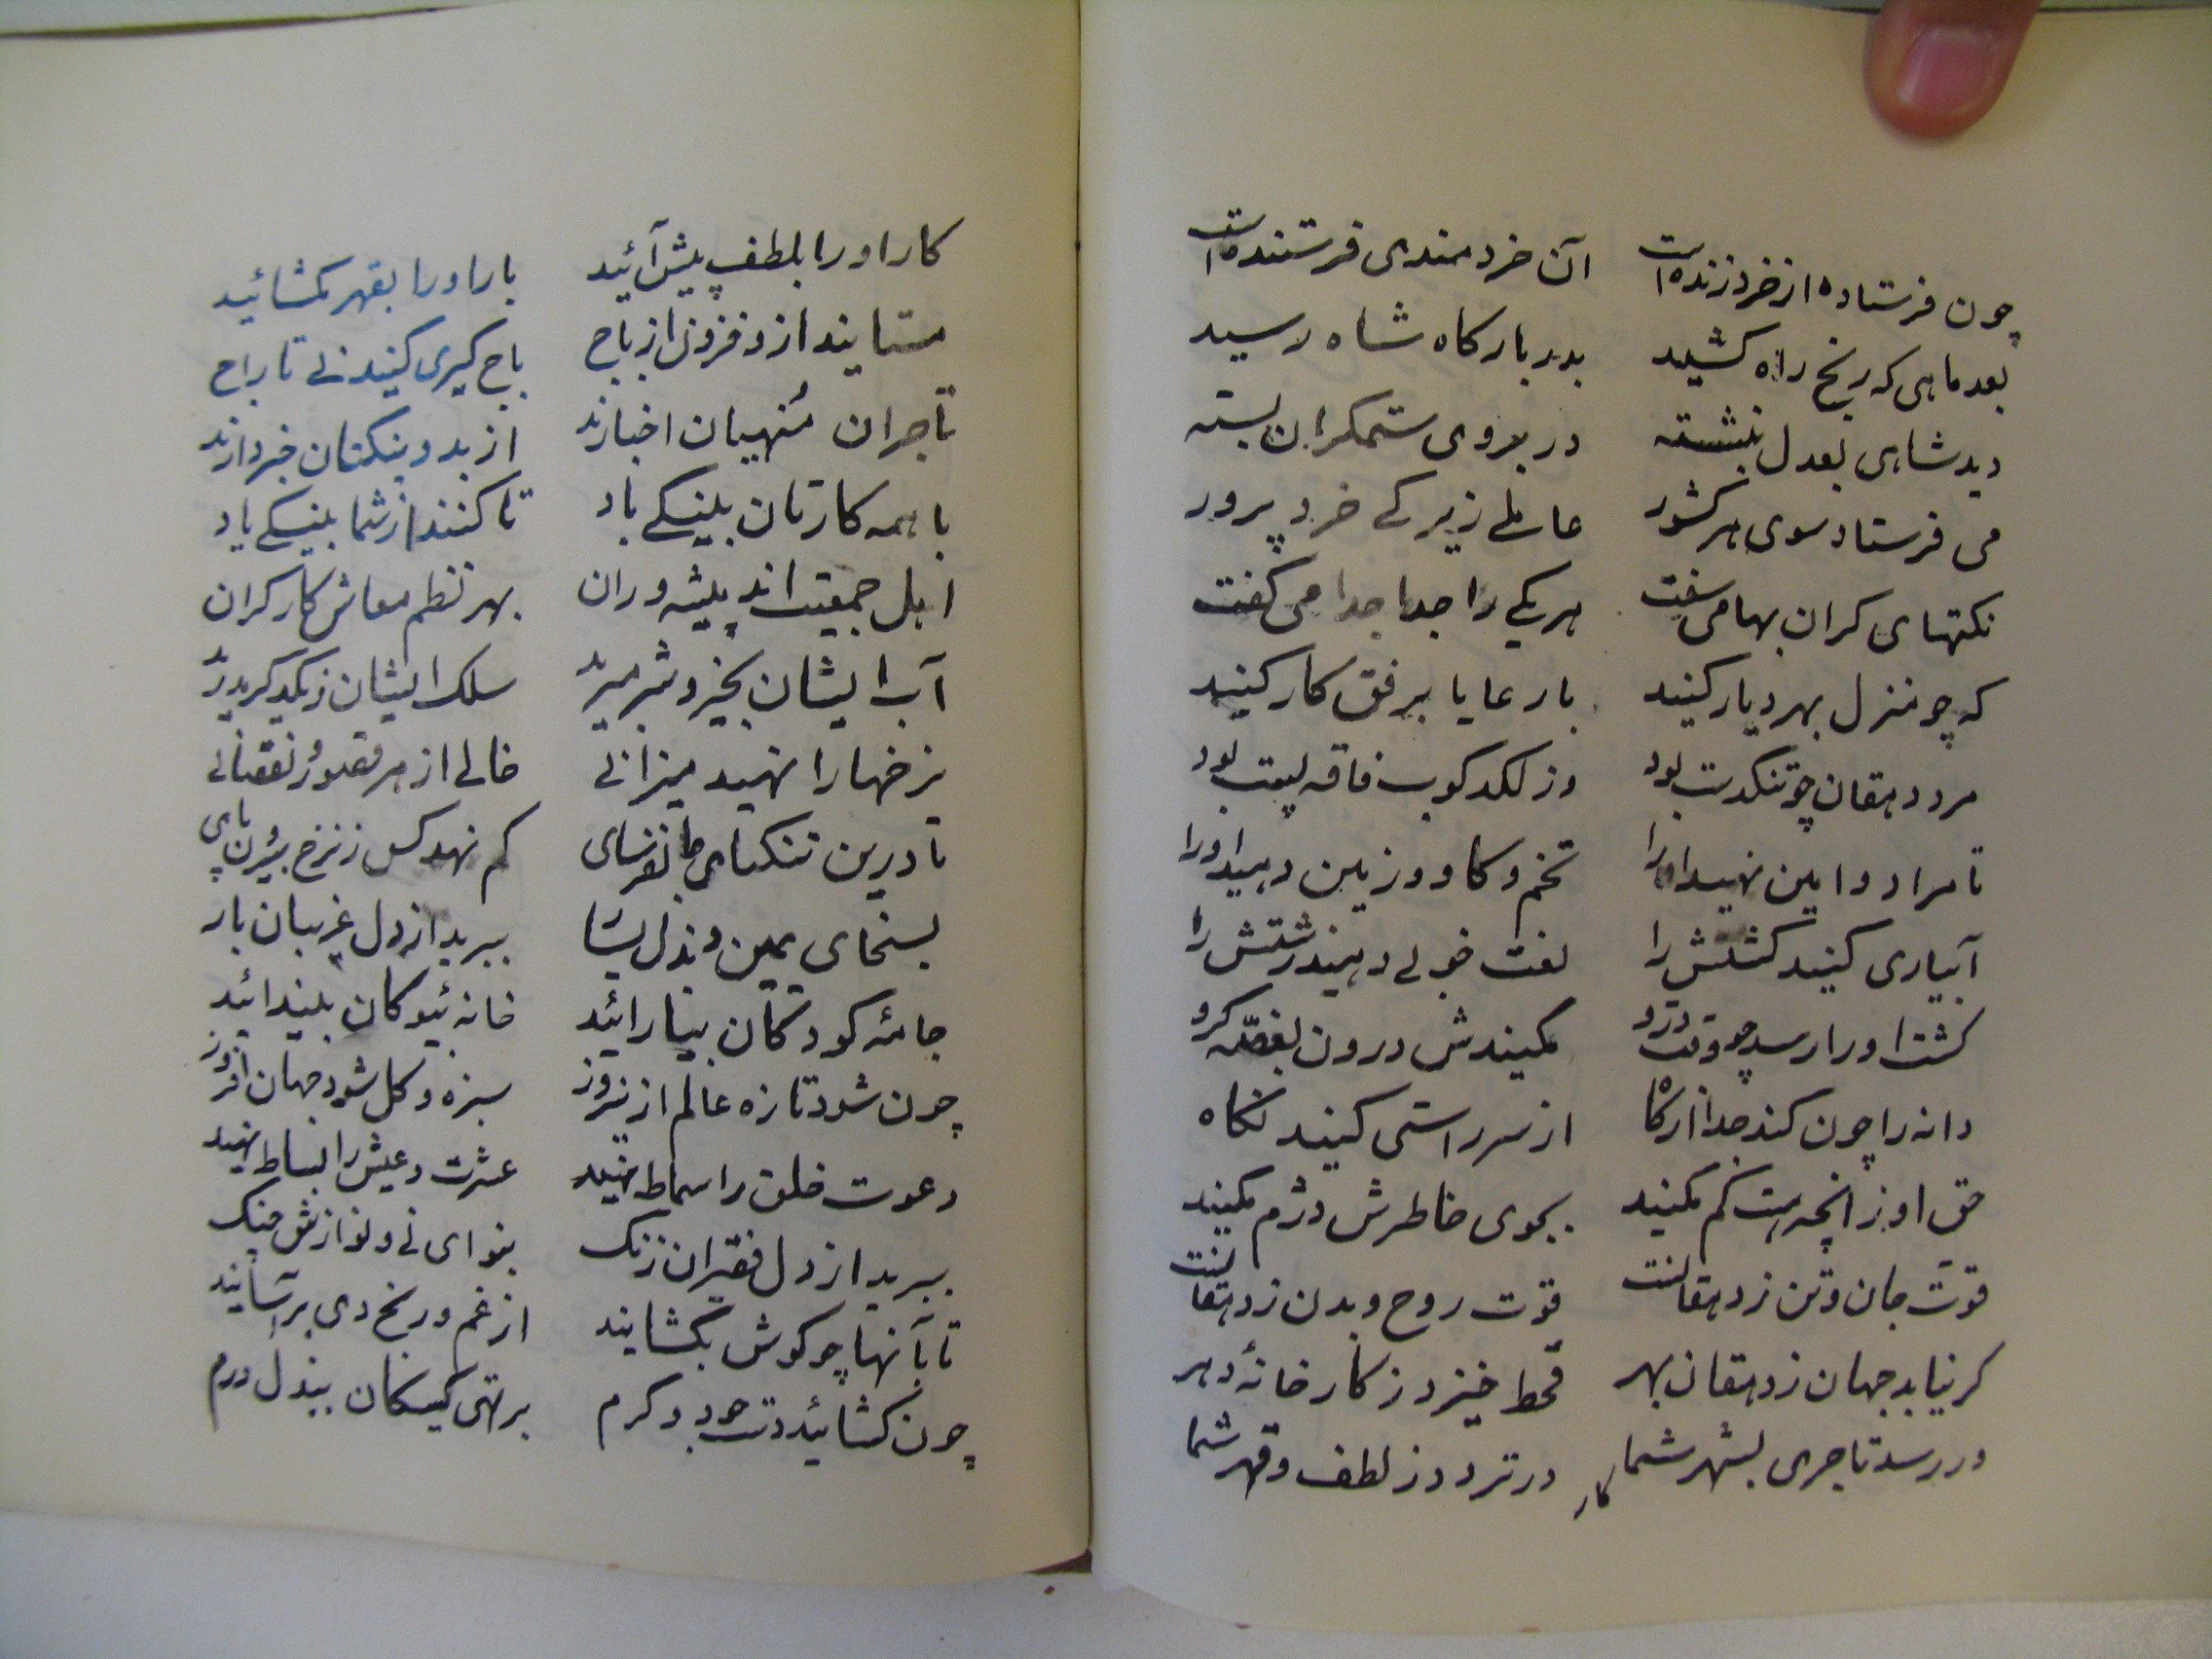 چون فرستاده از خرد زنده است آن خردمندی فرستنده است
بعد ماهی که رنج راه کشید بدر بارکاه شاه رسید
دید شاهی بعدل بنشسته در بروی ستمکران بسته
می فرستاد سوی هر کشور عاملے زیرکے خرد پرور
نکتهای کران بها می سفت هر یکے را جدا جدا می کفت
که چو منزل بهر دیار کنید با رعایا برفق کار کنید
مرد دهقان چو تنکدست بود وز لکدکوب فاقه پست بود
تا مراد دامین نهید اورا تخم و کاو و زمین دهید اورا
آبیاری کنید کشتش را لغت خوبے دهید زشتش را
کشت اورا رسد چو وقت درو مکنیدش درون بغصّه کرو
دانه را چون کند جدا از کاه از سر راستی کنید نکاه
حق او زانچه هست کم مکنید بجوی خاطرش دژم مکنید
قوت جان و تن ز دهقانست قوّت روح و بدن ز دهقانست
کر نیابد جهان ز دهقان بهر قحط خیزد ز کارخانهٔ دهر
ور رسد تاجری بشهر شما در تردد ز لطف و قهر شما
کار
کار اورا بلطف پیش آئید بار اورا بقهر مکشائید
مستایند ازو فزون از باج باج کیری کنید نے تاراج
تاجران مُنهیان اخبارند از بد و نیکتان خبر دارند
با همه کارتان بنیکے باد تا کنند از شما بنیکے یاد
اهل جمعیت اند پیشه وران بهر نظم معاش کارکران
آب ایشان بخیر و شر مبرید سلک ایشان ز یکدکر مدرید
نرخها را نهید میزانے خالے از هر قصور و نقصانے
تا درین تنکنای جانفرسای کم نهد کس ز نرخ بیرون پای
بسخای یمین و بذل یسار ببرید از دل غریبان بار
جامهٔ کودکان بیارائید خانه بیوکان بیندائید
چون شود تازه عالم از نوروز سبزه و کل شود جهان افروز
دعوت خلق را سماط نهید عشرت و عیش را بساط نهید
ببرید از دل فقیران زنک بنوای نے و نوازش چنک
تا بآنها چو کوش بکشایند از غم و رنج دمی برآسایند
چون کشائید دست جود و کرم بر تهی کیسکان ببذل درم